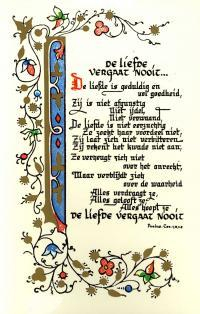 DE LIEFDE
VERGAAT NOOIT...
De liefde is geduldig en
vol goedheid,
Zij is niet afgunstig
Niet ijdel,
Niet verwaand,
De liefde is niet eerzuchtig
Ze zoekt haar voordeel niet,
Zij laat zich niet verbitteren
Zij rekent het kwade niet aan,
Ze verheugt zich niet
over het onrecht,
Maar verblijdt zich
over de waarheid
Alles verdraagt ze,
Alles gelooft ze,
Alles hoopt ze
DE LIEFDE VERGAAT NOOIT